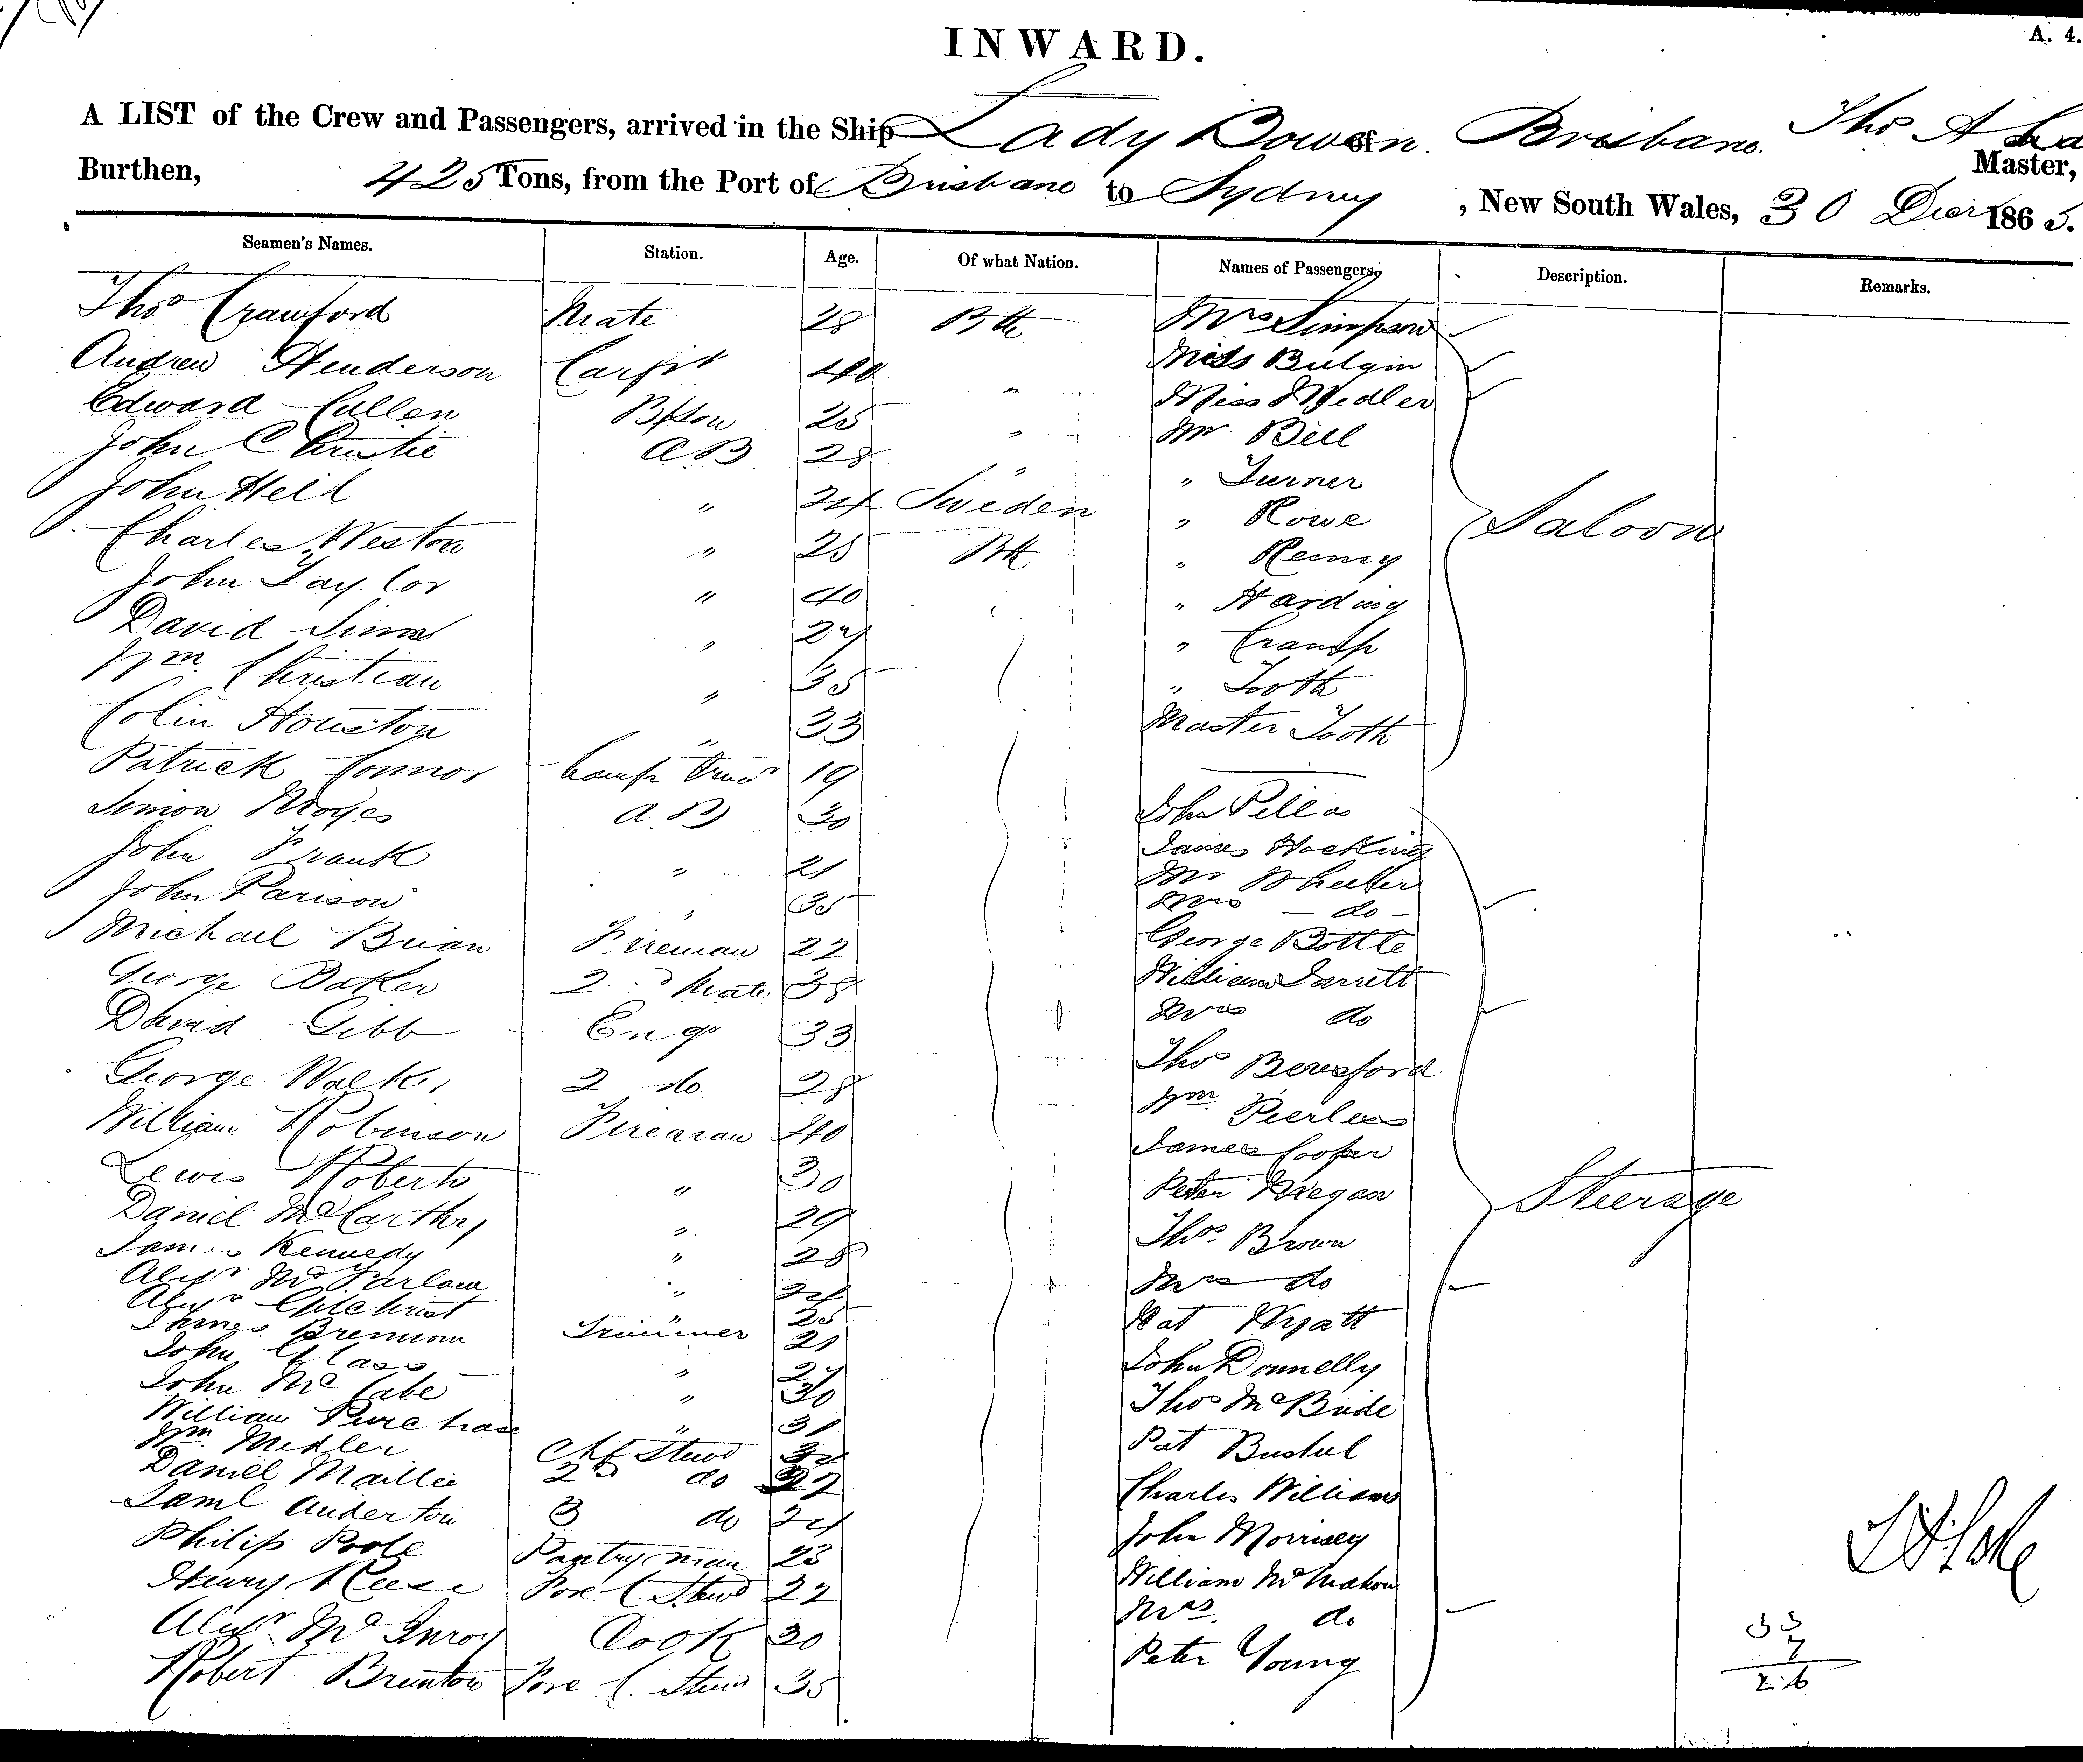 INWARD.
A. 4.
A LIST of the Crew and Passengers, arrived in the Ship Lady Bowen of Brisbane Thos A
Burthen, 425 Tons, from the Port of Brisbane to Sydney Master,
, New South Wales, 30 Decr 1865.
Seamen's Names. Station. Age. Of what Nation. Names of Passengers, Description. Remarks.
Thos Crawford Mate 28 Mrs Simpson
Andrew Henderson Carptr 40 " Miss Bulgin
Edward Cullen 25 " Miss Medler
John Christie AB 28 " Mr Bell
John Heil " 24 Sweden " Turner
Charles Weston " 25 " Rowe Saloon
John Taylor " 40 "
David Sims " 27 " Harding
Wm Christian " 35 "
Colin Houston " 33 " Tooth
Patrick Connor 19 Master Tooth
Simon Moyes A.B 30 John
John Frank " 21 James Hocking
John Parison " 35 Mr Wheeler
Mrs - do -
Michael Brian Fireman 22 George Bottle
George Baker 2nd Mate 38 William Jarrett
David Gibb Engr 33 Mrs do
George Walker 2 do 28 Thos Beresford
William Robinson Fireman 40 Wm Peerless
Lewis Roberts " 30 James Cooper
Daniel McCarthy " 29 Peter Steerage
James Kennedy " 28 Thos Brown
Alexr McFarlane " 24 Mrs do
Alexr Gilchrist " 25 Pat Wyatt
James Brennan Trimmer 21 John Donnelly
John Glass " 27
John McCabe " 30 Thos McBride
William " 31 Pat
Wm Medler Chf Stewd
Daniel Maillie 2d do 27 Charles Williams
Saml Anderton 3 do 24 John Morrisey
Philip Poole Pantryman 23 William McMahon
Henry Reese Fore C Stewd 22 Mrs. do
Alexr McInroy Cook 30 Peter Young
Robert Brunton Fore C. Stewd 35
33
7
26